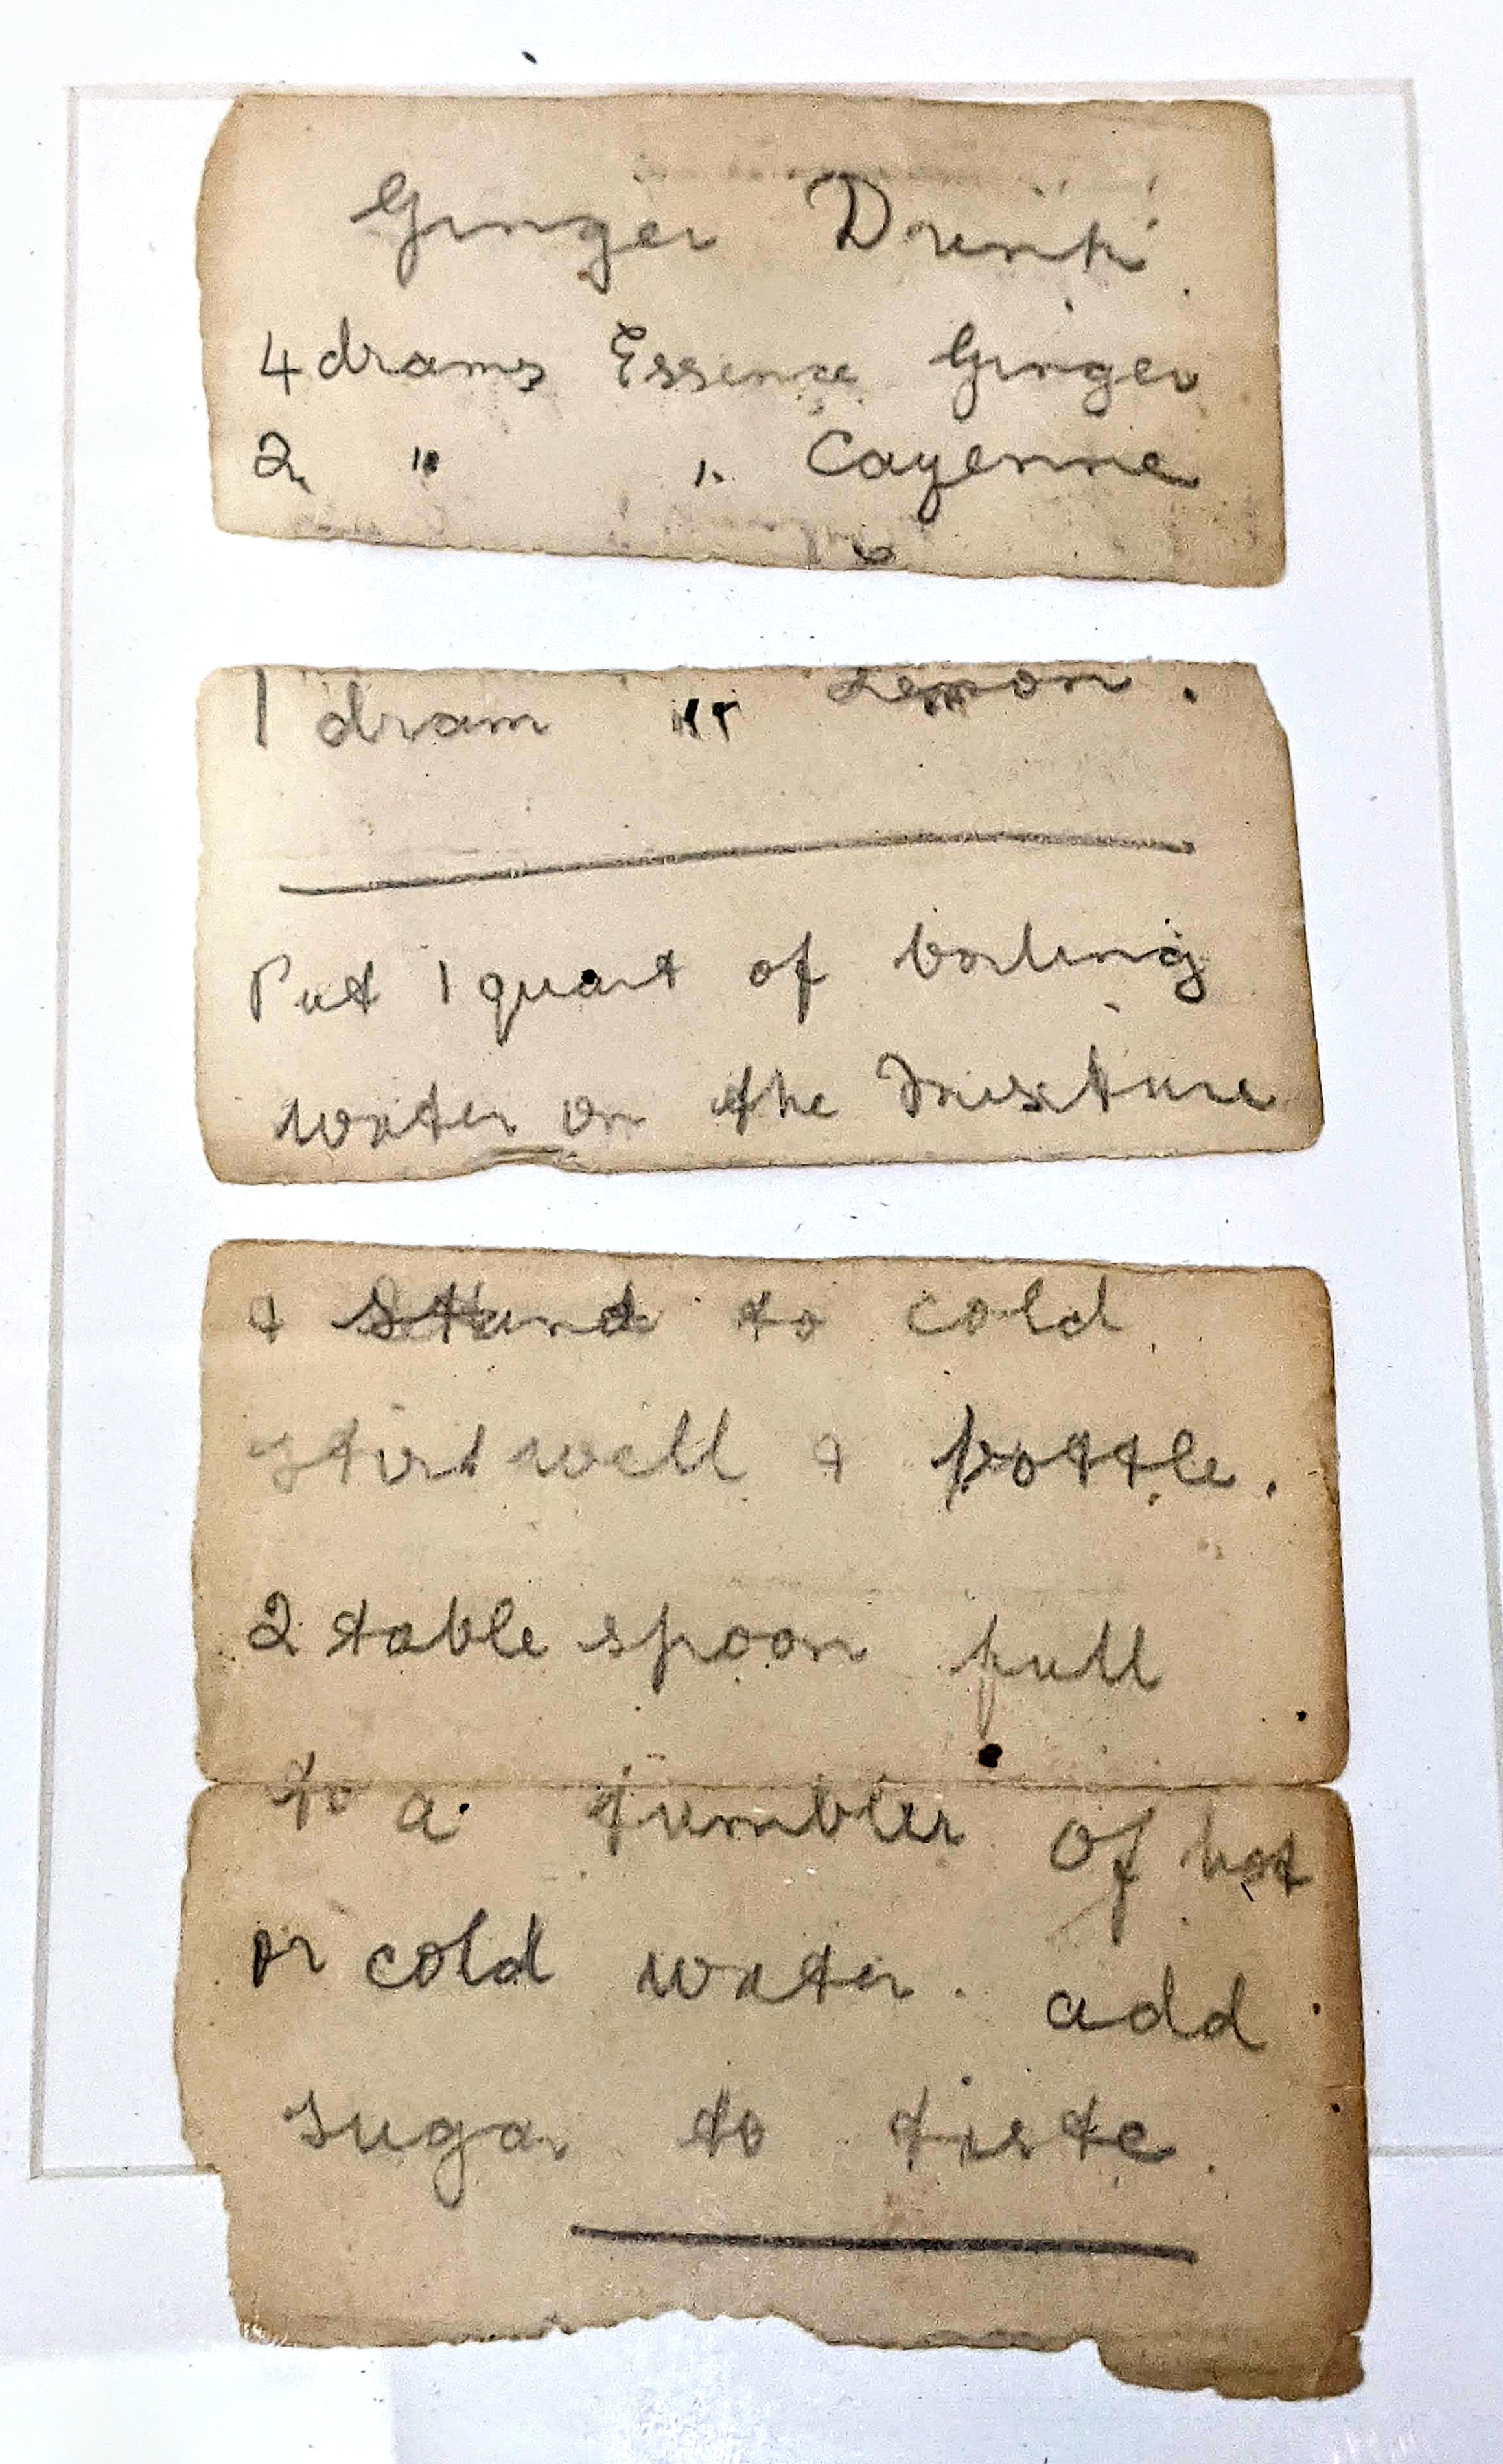 Ginger Drink
4 drams Essence Ginger
2 " " Cayenne
1 dram " Lemon.
Put 1 quart of boiling
water on the mixture
& Stand to cold.
stir well & bottle.
2 table spoon full
to a tumbler of hot
or cold water. add
sugar to taste.